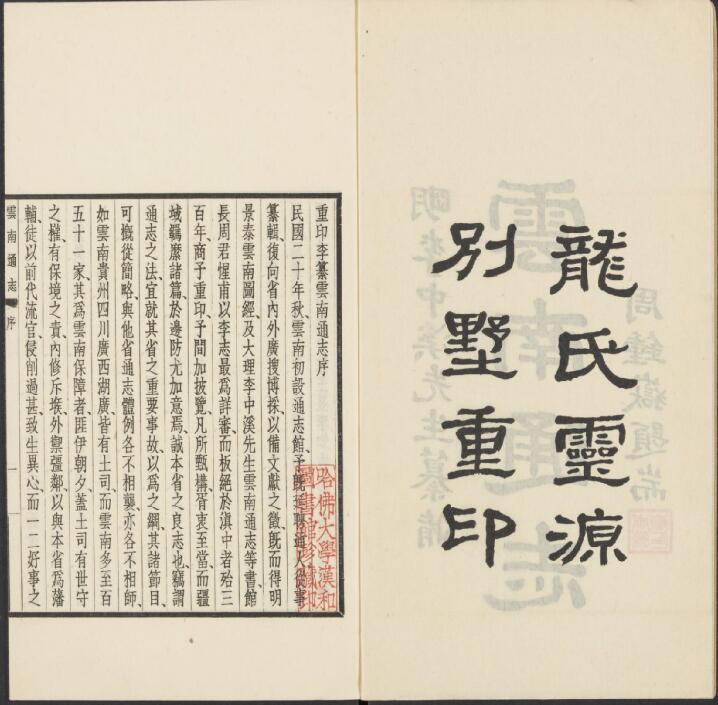 龍氏靈源
別墅重印
重印李纂雲南通志序
民國二十年秋、雲南初設通志館、予旣延聘通人從事
纂輯、復向省內外廣搜博採、以備文獻之徵、旣而得明
景泰雲南圖經及大理李中溪先生雲南通志等書、館
長周君惺甫以李志最爲詳審、而板絕於滇中者殆三
百年、商予重印、予間加披覽、凡所甄構、胥衷至當、而疆
域羈縻諸篇、於邊防尤加意焉、誠本省之良志也、竊謂
通志之法、宜就其省之重要事故、以爲之綱、其諸節目、
可槪從簡略、與他省通志體例各不相襲、亦各不相師、
如雲南貴州四川廣西湖廣皆有土司、而雲南多至百
五十一家、其爲雲南保障者、匪伊朝夕、蓋土司有世守
之權、有保境之責、內修斥堠、外禦彊鄰、以與本省爲藩
輔、徒以前代流官侵削過甚、致生異心、而一二好事之
雲南通志 序
一
哈佛大學漢和
圖書館珍藏印
雲南通志
明李中溪先生纂脩
周鍾嶽題耑